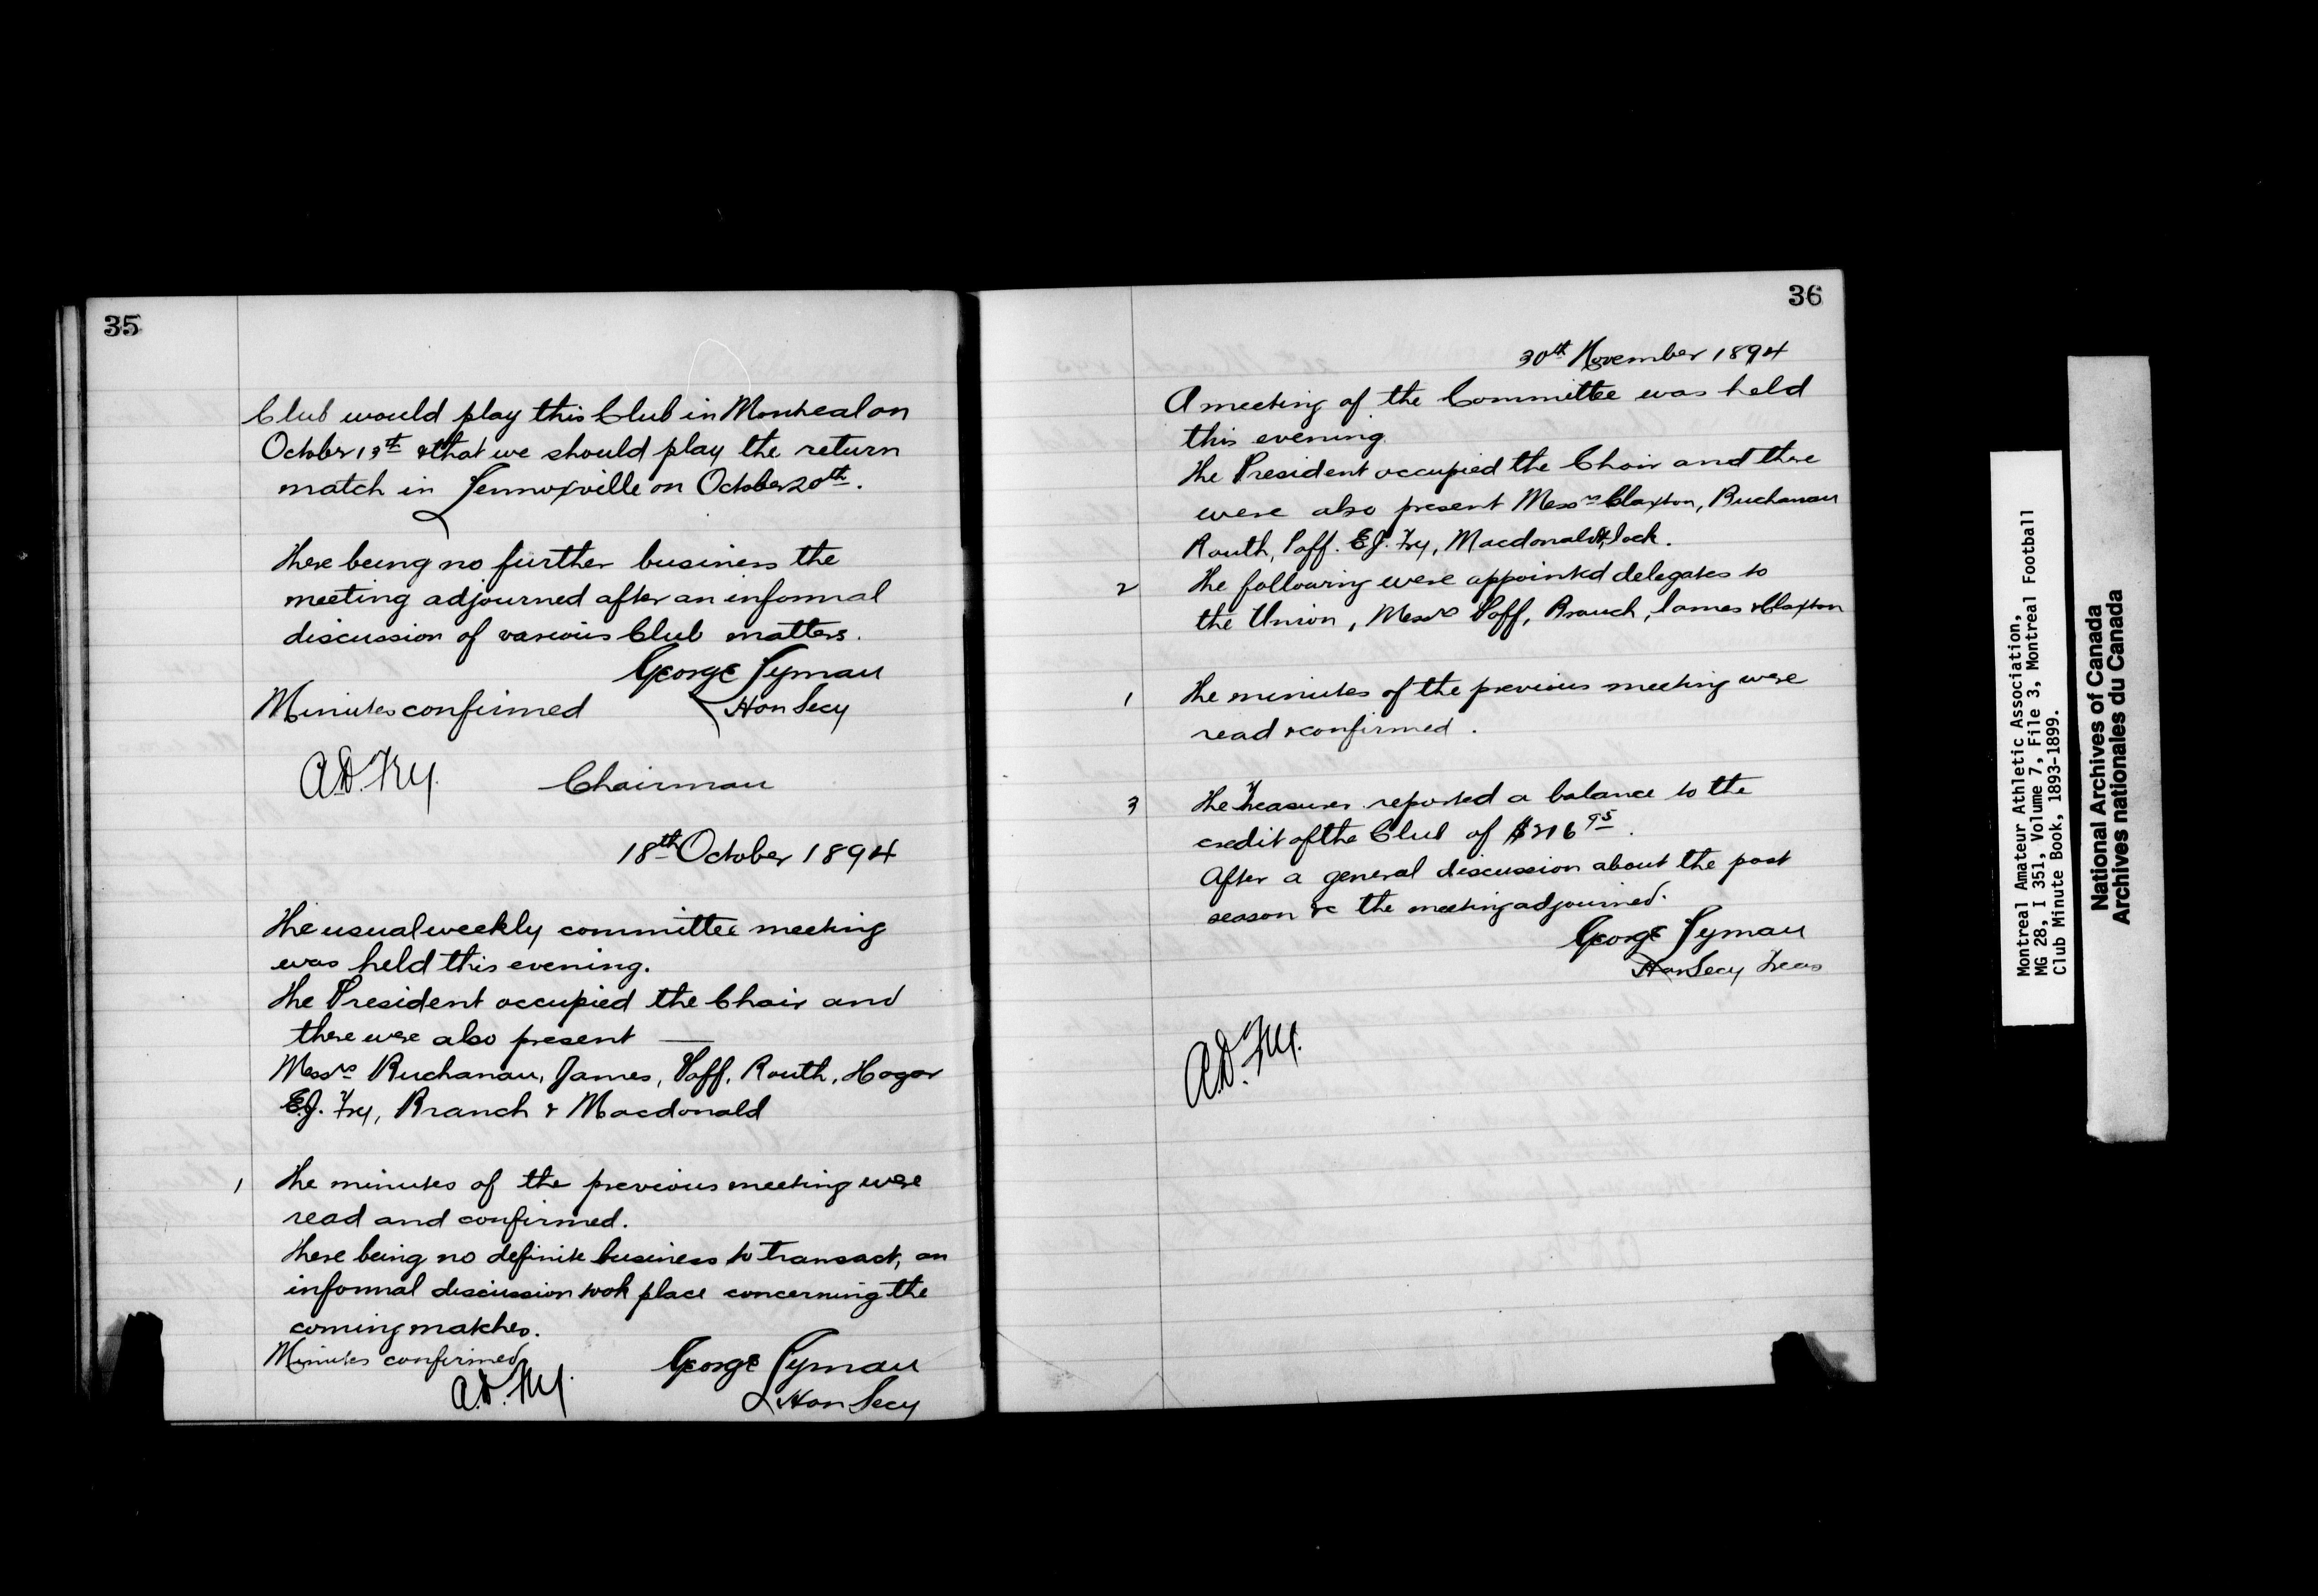 35
Club would play this Club in Montreal on
October 13th & that we should play the return
match in Lennoxville on October 20th.
There being no further business the
meeting adjourned after an informal
discussion of various Club matters.
George Lyman
Hon Secy
Minutes confirmed
A.D. Fry. Chairman
18th October 1894
The usual weekly committee meeting
was held this evening.
The President occupied the Chair and
there were also present —
Messrs Buchanan, James, Poff, Routh, Hagar
E.J. Fry, Branch & Macdonald
1 The minutes of the previous meeting were
read and confirmed.
There being no definite business to transact, an
informal discussion took place concerning the
coming matches.
Minutes confirmed
A.D. Fry.
George Lyman
Hon Secy
36
30th November 1894
A meeting of the Committee was held
this evening.
The President occupied the Chair and there
were also present Messrs Claxton, Buchanan
Routh, Poff. E.J. Fry, Macdonald & Jack.
2 The following were appointed delegates to
the Union, Messrs Poff, Branch, James & Claxton
1 The minutes of the previous meeting were
read & confirmed.
3 The Treasurer reported a balance to the
credit of the Club of $216 95.
After a general discussion about the past
season &c the meeting adjourned.
George Lyman
Hon Secy Treas
A.D. Fry.
Montreal Amateur Athletic Association,
MG 28, I 351, Volume 7, File 3, Montreal Football
Club Minute Book, 1893-1899.
National Archives of Canada
Archives nationales du Canada